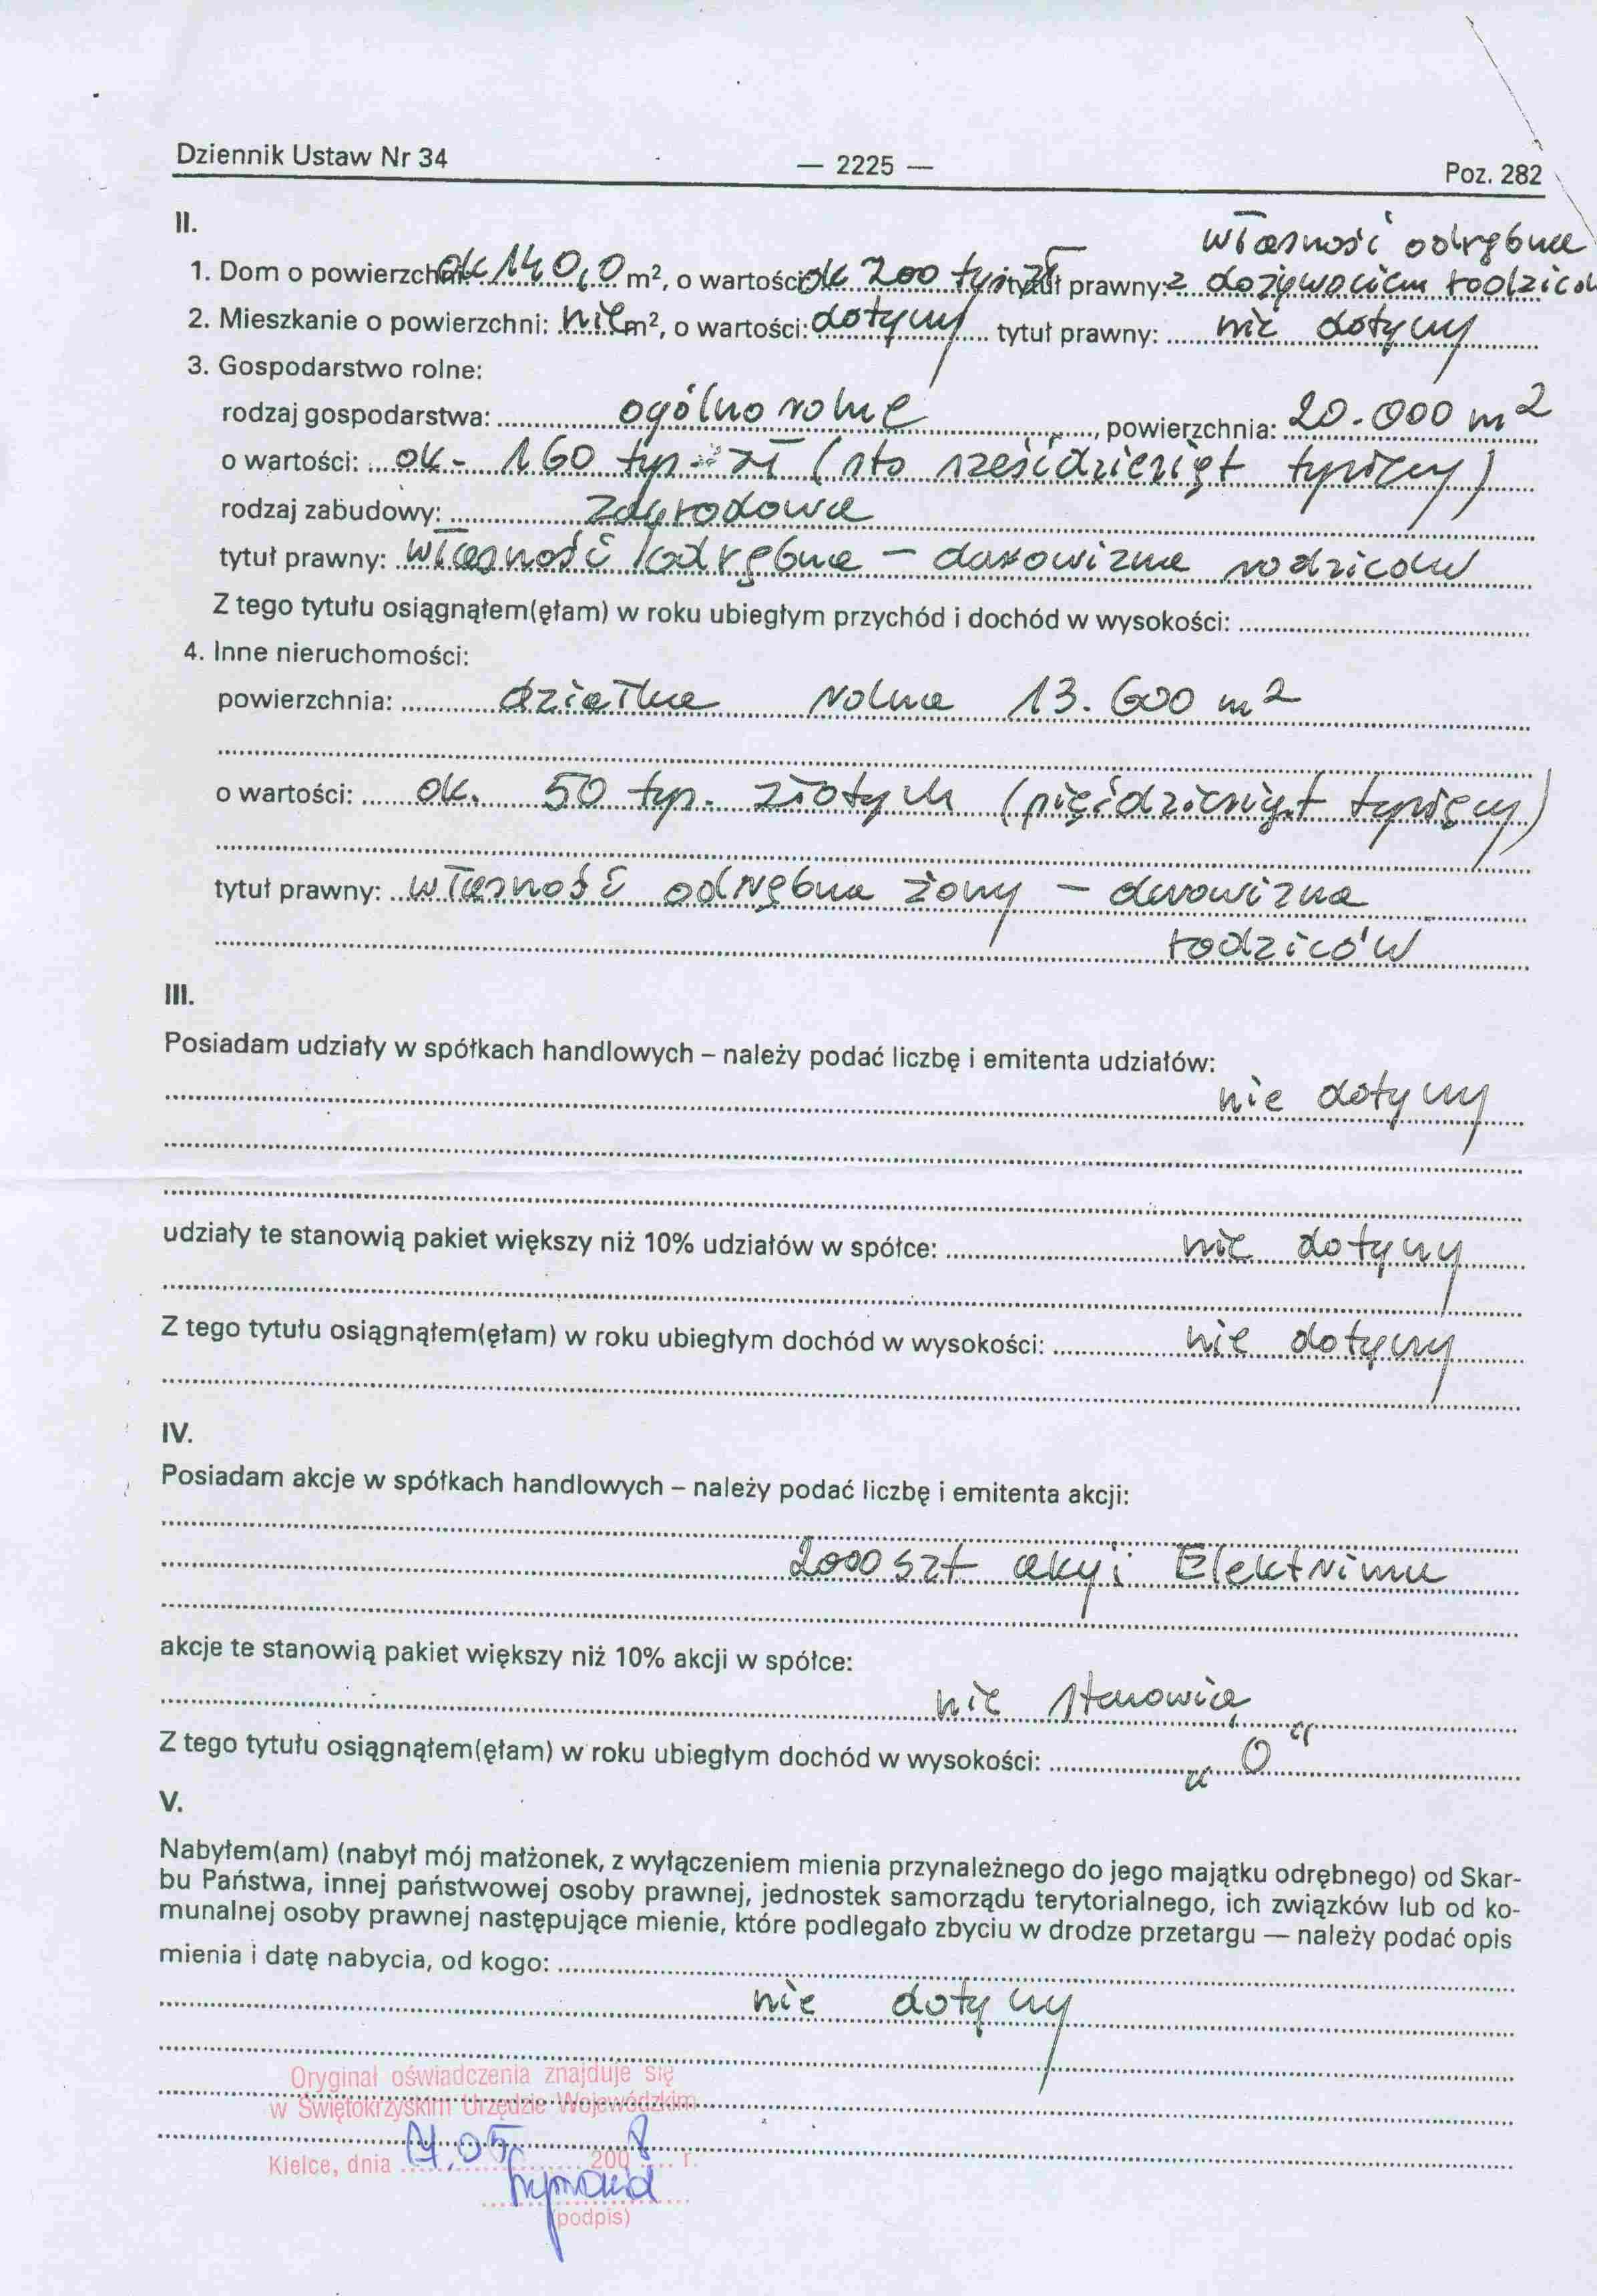 Dziennik Ustaw Nr 34 — 2225 — Poz. 282
II.
własność odrębna
1. Dom o powierzchni: ok 140,0 m², o wartości: ok 200 tys. zł tytuł prawny: z dożywociem rodziców
2. Mieszkanie o powierzchni: nie m², o wartości: dotyczy tytuł prawny: nie dotyczy
3. Gospodarstwo rolne:
rodzaj gospodarstwa: ogólno rolne, powierzchnia: 20.000 m²
o wartości: ok. 160 tys. zł (sto sześćdziesiąt tysięcy)
rodzaj zabudowy: zagrodowa
tytuł prawny: własność odrębna – darowizna rodziców
Z tego tytułu osiągnąłem(ęłam) w roku ubiegłym przychód i dochód w wysokości:
4. Inne nieruchomości:
powierzchnia: działka rolna 13.600 m²
o wartości: ok. 50 tys. złotych (pięćdziesiąt tysięcy)
tytuł prawny: własność odrębna żony – darowizna
rodziców
III.
Posiadam udziały w spółkach handlowych – należy podać liczbę i emitenta udziałów:
nie dotyczy
udziały te stanowią pakiet większy niż 10% udziałów w spółce: nie dotyczy
Z tego tytułu osiągnąłem(ęłam) w roku ubiegłym dochód w wysokości: nie dotyczy
IV.
Posiadam akcje w spółkach handlowych – należy podać liczbę i emitenta akcji:
2000 szt akcji Elektrimu
akcje te stanowią pakiet większy niż 10% akcji w spółce:
nie stanowią
Z tego tytułu osiągnąłem(ęłam) w roku ubiegłym dochód w wysokości: „0"
V.
Nabyłem(am) (nabył mój małżonek, z wyłączeniem mienia przynależnego do jego majątku odrębnego) od Skar-
bu Państwa, innej państwowej osoby prawnej, jednostek samorządu terytorialnego, ich związków lub od ko-
munalnej osoby prawnej następujące mienie, które podlegało zbyciu w drodze przetargu — należy podać opis
mienia i datę nabycia, od kogo:
nie dotyczy
Oryginał oświadczenia znajduje się
w Świętokrzyskim Urzędzie Wojewódzkim
Kielce, dnia 05 2008 r.
(podpis)